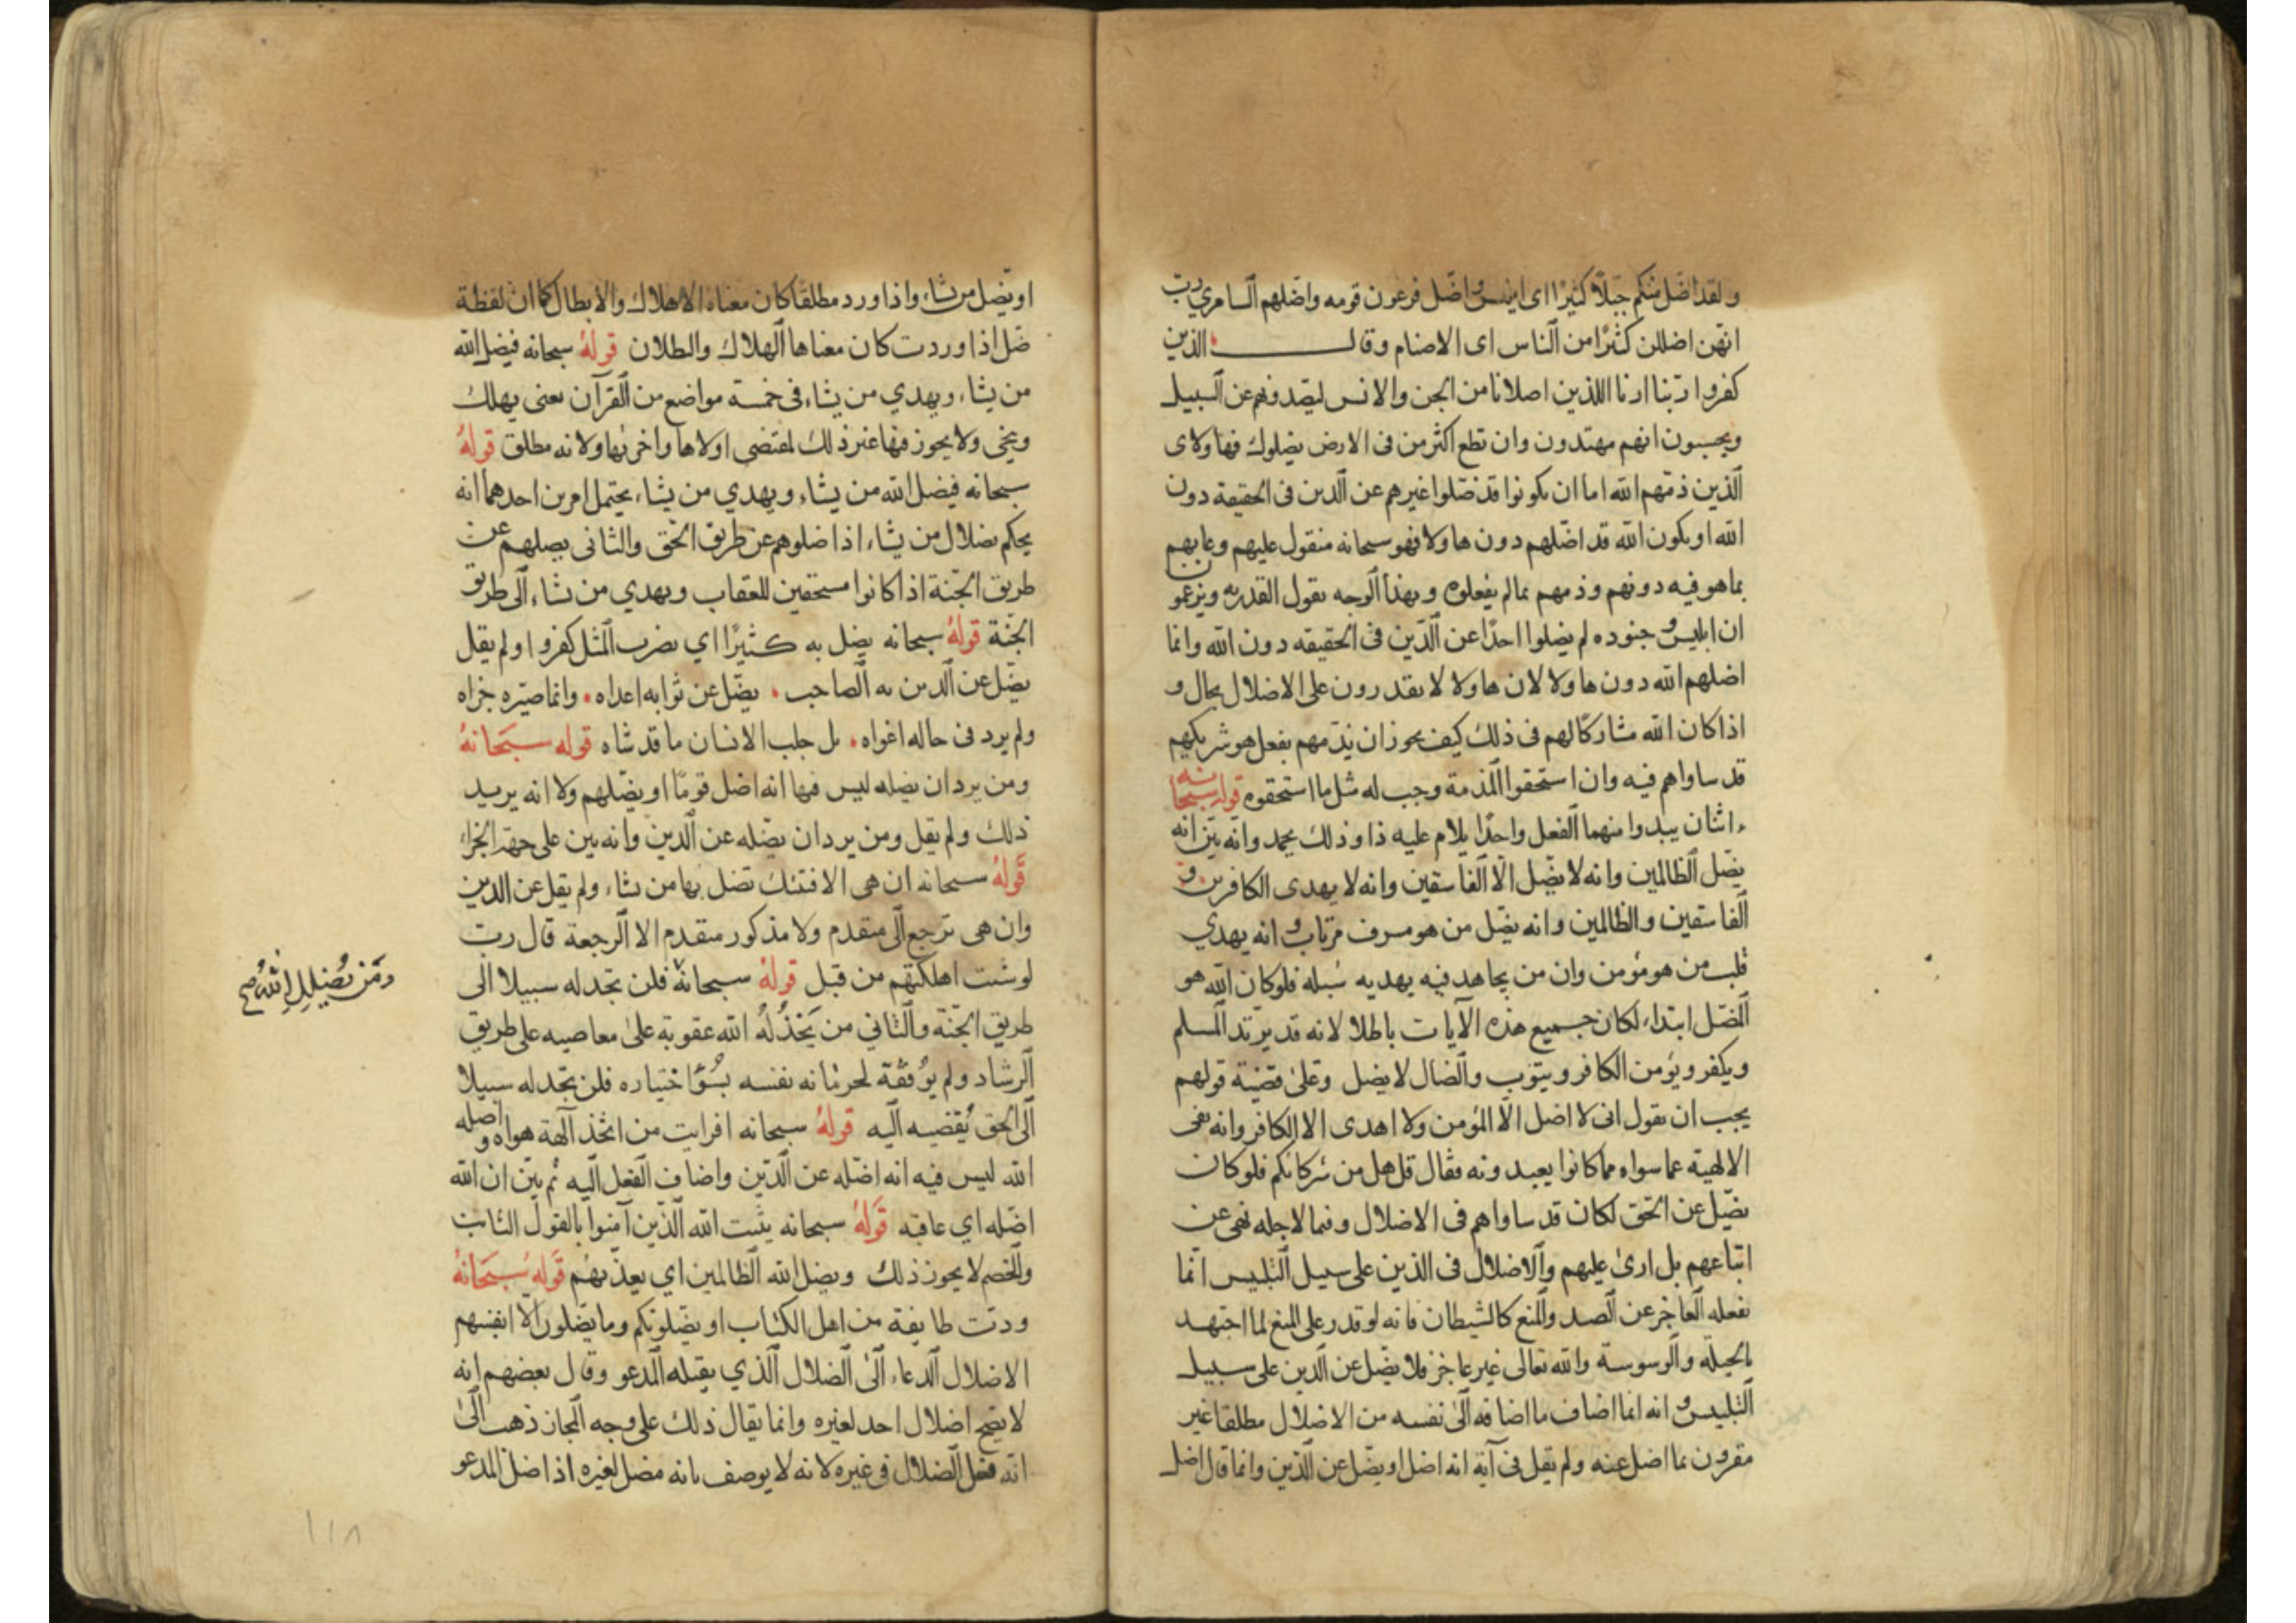 ولقد اضل منكم جبلًا كثيرًا اى ابليس واضل فرعون قومه واضلهم السامري رب
انهن اضللن كثيرًا من الناس اى الاصنام وقال الذين
كفروا ربنا ارنا اللذين اضلانا من الجن والانس ليصدونهم عن السبيل
ويحسبون انهم مهتدون وان تطع اكثر من فى الارض يضلوك فهاولاى
الذين ذمهم الله اما ان يكونوا قد ضلوا غيرهم عن الدين فى الحقيقة دون
الله او يكون الله قد اضلهم دون هاولا فهو سبحانه منقول عليهم وعابهم
بما هو فيه دونهم وذمهم بما لم يفعلوه وبهذا الوجه يقول القدريه ويزعمون
ان ابليس وجنوده لم يضلوا احدًا عن الدين فى الحقيقه دون الله وانما
اضلهم الله دون هاولا لان هاولا لا يقدرون على الاضلال بحال و
اذا كان الله مشاركًا لهم فى ذلك كيف يجوز ان يذمهم بفعل هو شريكهم
قد ساواهم فيه وان استحقوا المذمة وجب له مثل ما استحقوه قوله سبحانه
اثنان يبدوا منهما الفعل واحدًا يلام عليه ذا وذلك يحمد وانه بين انه
يضل الظالمين وانه لا يضل الا الفاسقين وانه لا يهدى الكافرين و
الفاسقين والظالمين وانه يضل من هو مسرف مرتاب وانه يهدي
قلب من هو مؤمن وان من يجاهد فيه يهديه سبله فلو كان الله هو
المضل ابتداء لكان جميع هذه الآيات باطلا لانه قد يرتد المسلم
ويكفر ويؤمن الكافر ويتوب والضال لا يضل وعلى قضية قولهم
يجب ان يقول انى لا اضل الا المؤمن ولا اهدى الا الكافر وانه نفى
الالهية عما سواه مما كانوا يعبدونه فقال قل هل من شركائكم فلو كان
يضل عن الحق لكان قد ساواهم فى الاضلال وفيما لاجله نهى عن
اتباعهم بل ارى عليهم والاضلال فى الدين على سبيل التلبيس انما
يفعله العاجز عن الصد والمنع كالشيطان فانه لو قدر على المنع لما اجتهد
بالحيلة والوسوسة والله تعالى غير عاجز فلا يضل عن الدين على سبيل
التلبيس وانه انما اضاف ما اضافه الى نفسه من الاضلال مطلقا غير
مقرون بما اضل عنه ولم يقل فى آية انه اضل او يضل عن الدين وانما قال اضل
او يضل من يشاء واذا ورد مطلقا كان معناه الاهلاك والابطال كما ان لفظة
ضل اذا وردت كان معناها الهلاك والبطلان قوله سبحانه فيضل الله
من يشاء ويهدي من يشاء فى خمسة مواضع من القرآن يعنى يهلك
وينجى ولا يجوز فيها غير ذلك لمقتضى اولاها واخرها ولانه مطلق قوله
سبحانه فيضل الله من يشاء ويهدي من يشاء يحتمل امرين احدهما انه
يحكم بضلال من يشاء اذا ضلوا هم عن طريق الحق والثانى يضلهم عن
طريق الجنة اذا كانوا مستحقين للعقاب ويهدي من يشاء الى طريق
الجنة قوله سبحانه يضل به كثيرًا اي يضرب المثل كفروا ولم يقل
يضل عن الدين به الصاحب يضل عن ثوابه اعداه وانما صيره جزاه
ولم يرد فى حاله اغواه بل جلب الانسان ما قد شاه قوله سبحانه
ومن يرد ان يضله ليس فيها انه اضل قومًا او يضلهم ولا انه يريد
ذلك ولم يقل ومن يرد ان يضله عن الدين وانه بين على جهة الجزاء
قوله سبحانه ان هى الا فتنتك تضل بها من تشاء ولم يقل عن الدين
وان هى ترجع الى متقدم ولا مذكور متقدم الا الرجعة قال رب
لو شئت اهلكتهم من قبل قوله سبحانه فلن تجد له سبيلا الى
ومن يضلل الله صح
طريق الجنة والثاني من يخذله الله عقوبة على معاصيه على طريق
الرشاد ولم يوفقه لحرمانه نفسه بسوء اختياره فلن تجد له سبيلا
الى الحق يقضيه اليه قوله سبحانه افرايت من اتخذ آلهة هواه واضله
الله ليس فيه انه اضله عن الدين واضاف الفعل اليه ثم بين ان الله
اضله اي عاقبه قوله سبحانه يثبت الله الذين آمنوا بالقول الثابت
والخصم لا يجوز ذلك ويضل الله الظالمين اي يعذبهم قوله سبحانه
ودت طايفة من اهل الكتاب او يضلونكم وما يضلون الا انفسهم
الاضلال الدعاء الى الضلال الذي يقبله المدعو وقال بعضهم انه
لا يصح اضلال احد لغيره وانما يقال ذلك على وجه المجاز ذهب الى
انه فعل الضلال فى غيره لانه لا يوصف بانه مضل لغيره اذا ضل المدعو
١١٨